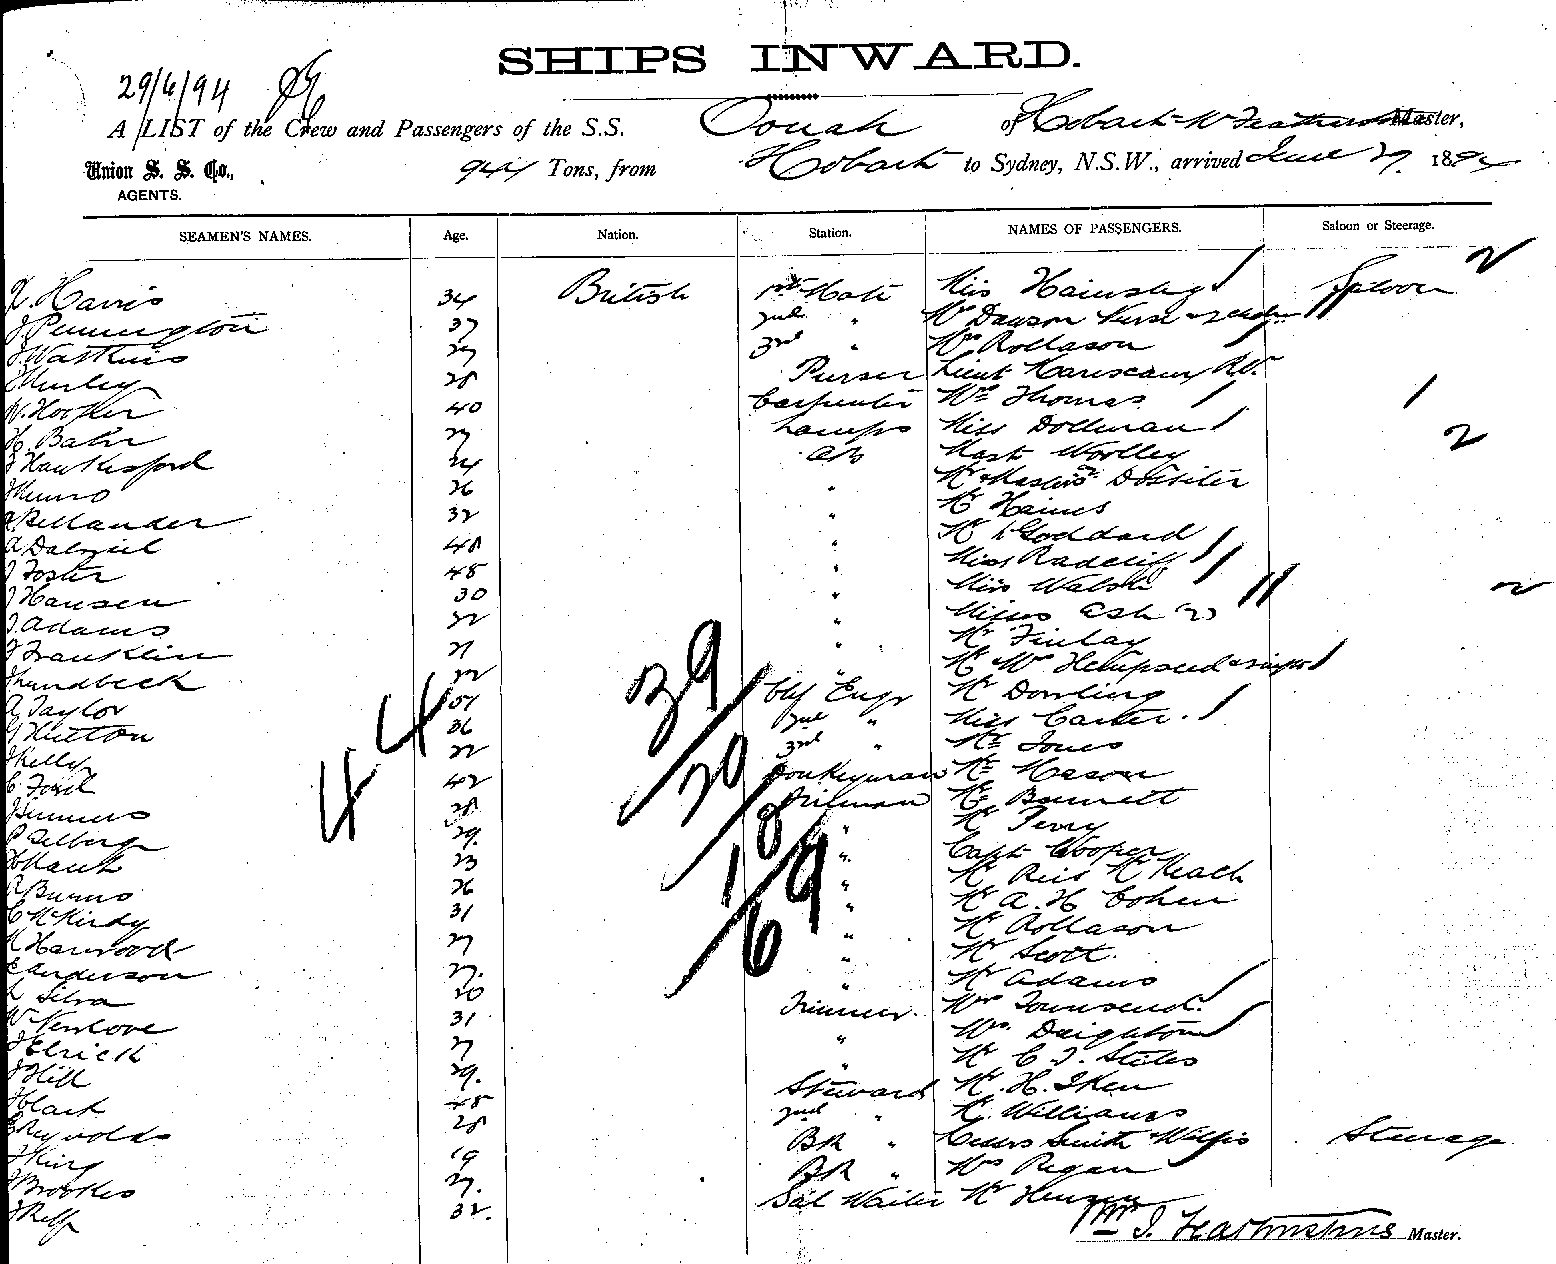 SHIPS INWARD.
29/6/94
A LIST of the Crew and Passengers of the S.S. Oonah of Hobart W Master,
Union S. S. Co., 944 Tons, from Hobart to Sydney, N.S.W., arrived June 29. 1894
AGENTS.
SEAMEN'S NAMES. Age. Nation. Station. NAMES OF PASSENGERS. Saloon or Steerage.
Harris 34 British 1st Mate Miss Saloon 2
Pennington 37 2nd " Dawson Nurse
J Watkins 27 3rd " Mrs Rollason
Hurley 28 Purser Lieut R.N.
W. Hooper 40 Carpenter Mrs Thomas 1
H. Bahr 27 Lamps Miss Dollman 2
Hawkesford 24 AB Mast Woolley
Munro 26 " Mr Masters Dossiter
Bellander 32 " Mr Haines
A Dalziel 48 " Mr Goddard
J Foster 48 " Miss Radcliff
J Hansen 30 " Miss Walsh 2
J. Adams 22 " Misses Ash (2)
J Franklin 21 " Mr Finlay
Lundbeck 22 " Mr Mrs Hempseed
A Taylor Chf Engr Mr Dowling
G Hutton 36 2nd " Miss Carter.
J Kelly 22 3rd " Mr Jones
C Ford 42 Donkeyman Mr Mason
28 Fireman Mr Burnett
P Selberg 29. " Mr Perry
23 " Capt Cooper
R Burns 26 " Mr Reis Mr Keach
C McKirdy 31 " Mr A. H. Cohen
Harwood 27 " Mr Rollason
E Anderson 27. " Mr Scott.
L Silva 20 " Mr Adams
W Newlove 31 Trimmer. Mrs Townsend.
J Elrick 27 " Mrs Deighton
J Hill 29. " Mr C. J. Stiles
J Clark 48 Steward Mr. H. Iken
E Reynolds 28 2nd " Mr. Williams
J King 19 BR " Smith Steerage
J Brookes 27. BR " Mrs Regan
J Relf 32. Sal Waiter Mr
44
39
20
10
69
Master.